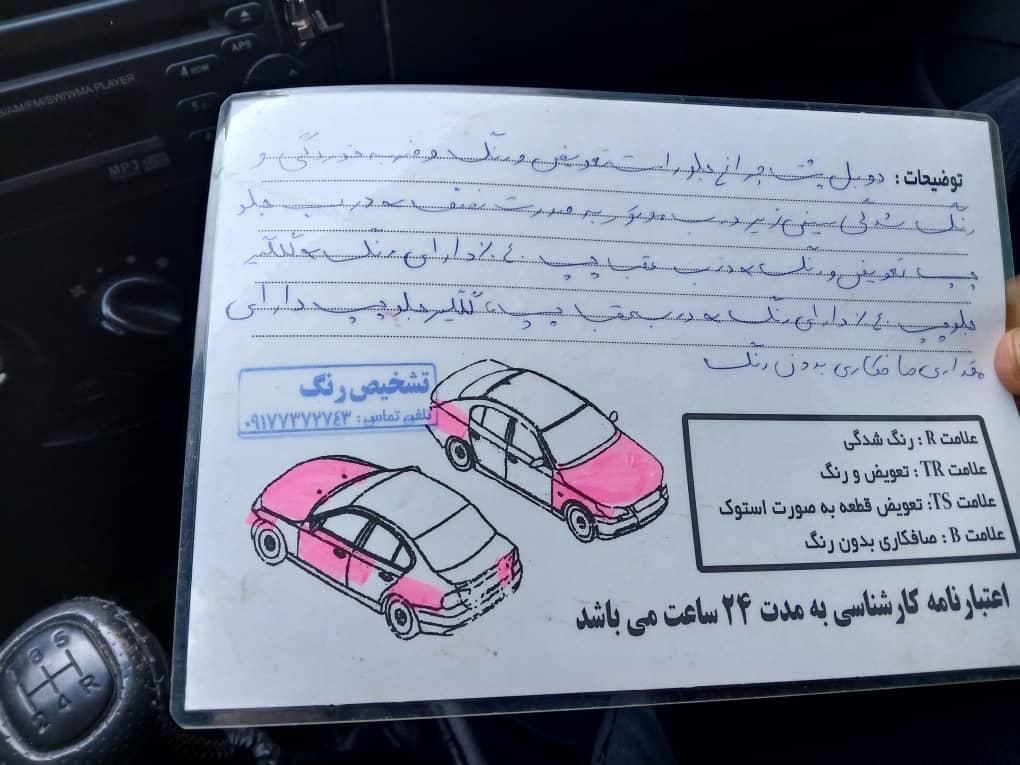 AM/FM/SW/WMA PLAYER
APS
4 RDM
5
MP3
توضیحات : دوبل پشت چراغ جلو راست تعویض و رنگ و ضربه خوردگی و
رنگ شدگی سینی زیر درب موتور به صورت نصف - درب جلو
چپ تعویض و رنگ - درب عقب چپ ٤٠٪ دارای رنگ - گلگیر
جلو چپ ٤٠٪ دارای رنگ - درب عقب گلگیر جلو چپ دارای
مقداری صافکاری بدون رنگ
تشخیص رنگ
تلفن تماس : ۰۹۱۷۷۳۷۲۷٤۳
علامت R : رنگ شدگی
علامت TR : تعویض و رنگ
علامت TS: تعویض قطعه به صورت استوک
علامت B : صافکاری بدون رنگ
اعتبارنامه کارشناسی به مدت ۲۴ ساعت می باشد
S
R
2 4